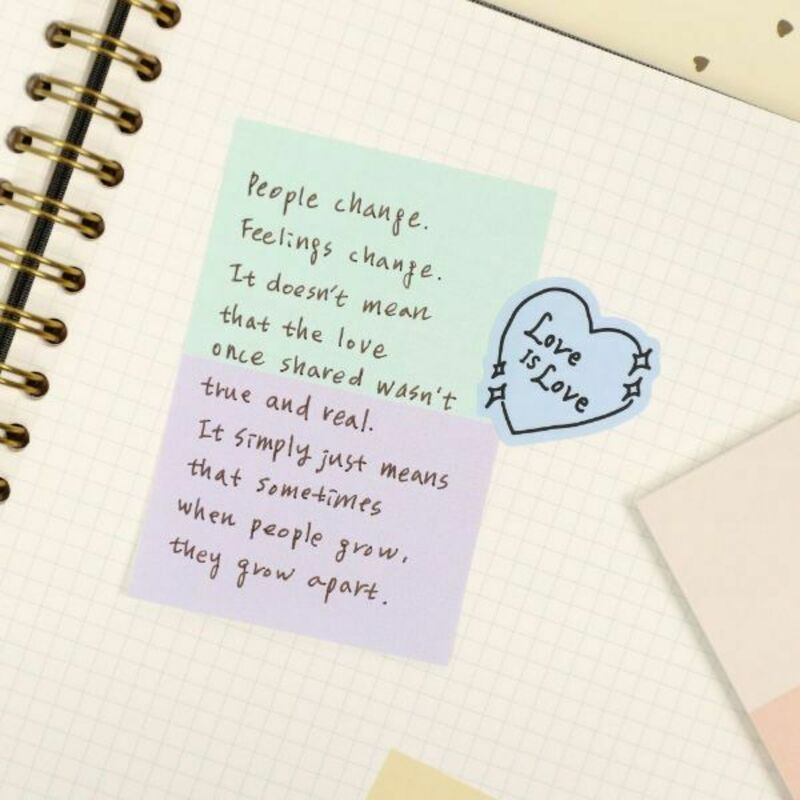 People change.
Feelings change.
It doesn't mean
that the love
once shared wasn't
true and real.
It simply just means
that sometimes
when people grow,
they grow apart.
Love
IS Love